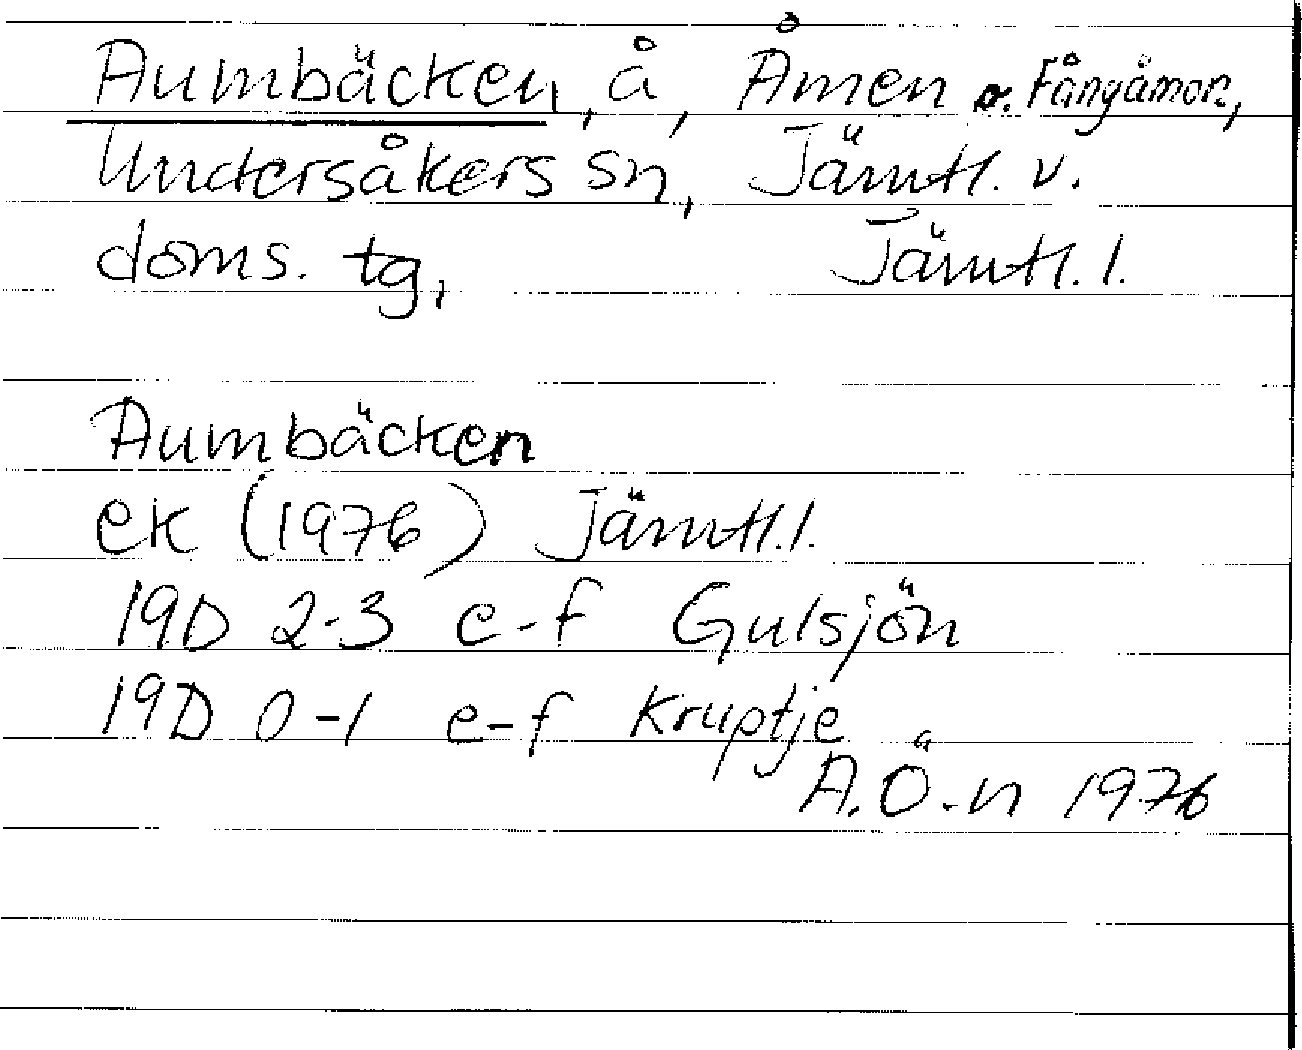 Aumbäcken, å, Åmen o. Fångåmon,
Undersåkers sn, Jämtl. v.
doms. tg, Jämtl. l.
Aumbäcken
ek (1976) Jämtl. l.
19D 2-3 e-f Gulsjön
19D 0-1 e-f Kruptje
A.Ö-n 1976